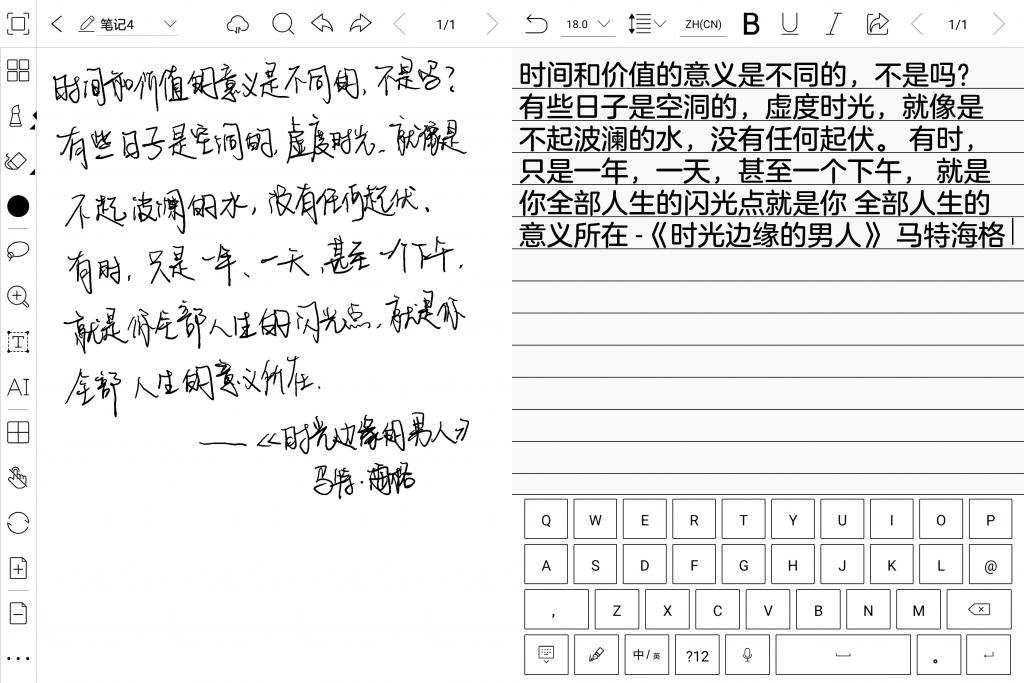 笔记4
1/1
时间和价值的意义是不同的，不是吗？
有些日子是空洞的，虚度时光，就像是
不起波澜的水，没有任何起伏、
有时，只是一年、一天，甚至一个下午，
就是你全部人生的闪光点，就是你
全部人生的意义所在．
——《时光边缘的男人》
马特·海格
AI
18.0
ZH(CN)
B U I
1/1
时间和价值的意义是不同的，不是吗？
有些日子是空洞的，虚度时光，就像是
不起波澜的水，没有任何起伏。 有时，
只是一年，一天，甚至一个下午， 就是
你全部人生的闪光点就是你 全部人生的
意义所在 -《时光边缘的男人》 马特海格
Q W E R T Y U I O P
A S D F G H J K L @
, Z X C V B N M
中/英 ?12 。